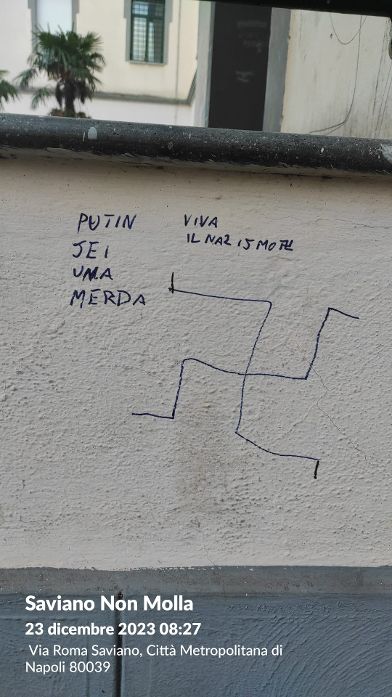 PUTIN
JEI
UMA
MERDA
VIVA
IL NAZISMO
Saviano Non Molla
23 dicembre 2023 08:27
Via Roma Saviano, Città Metropolitana di
Napoli 80039